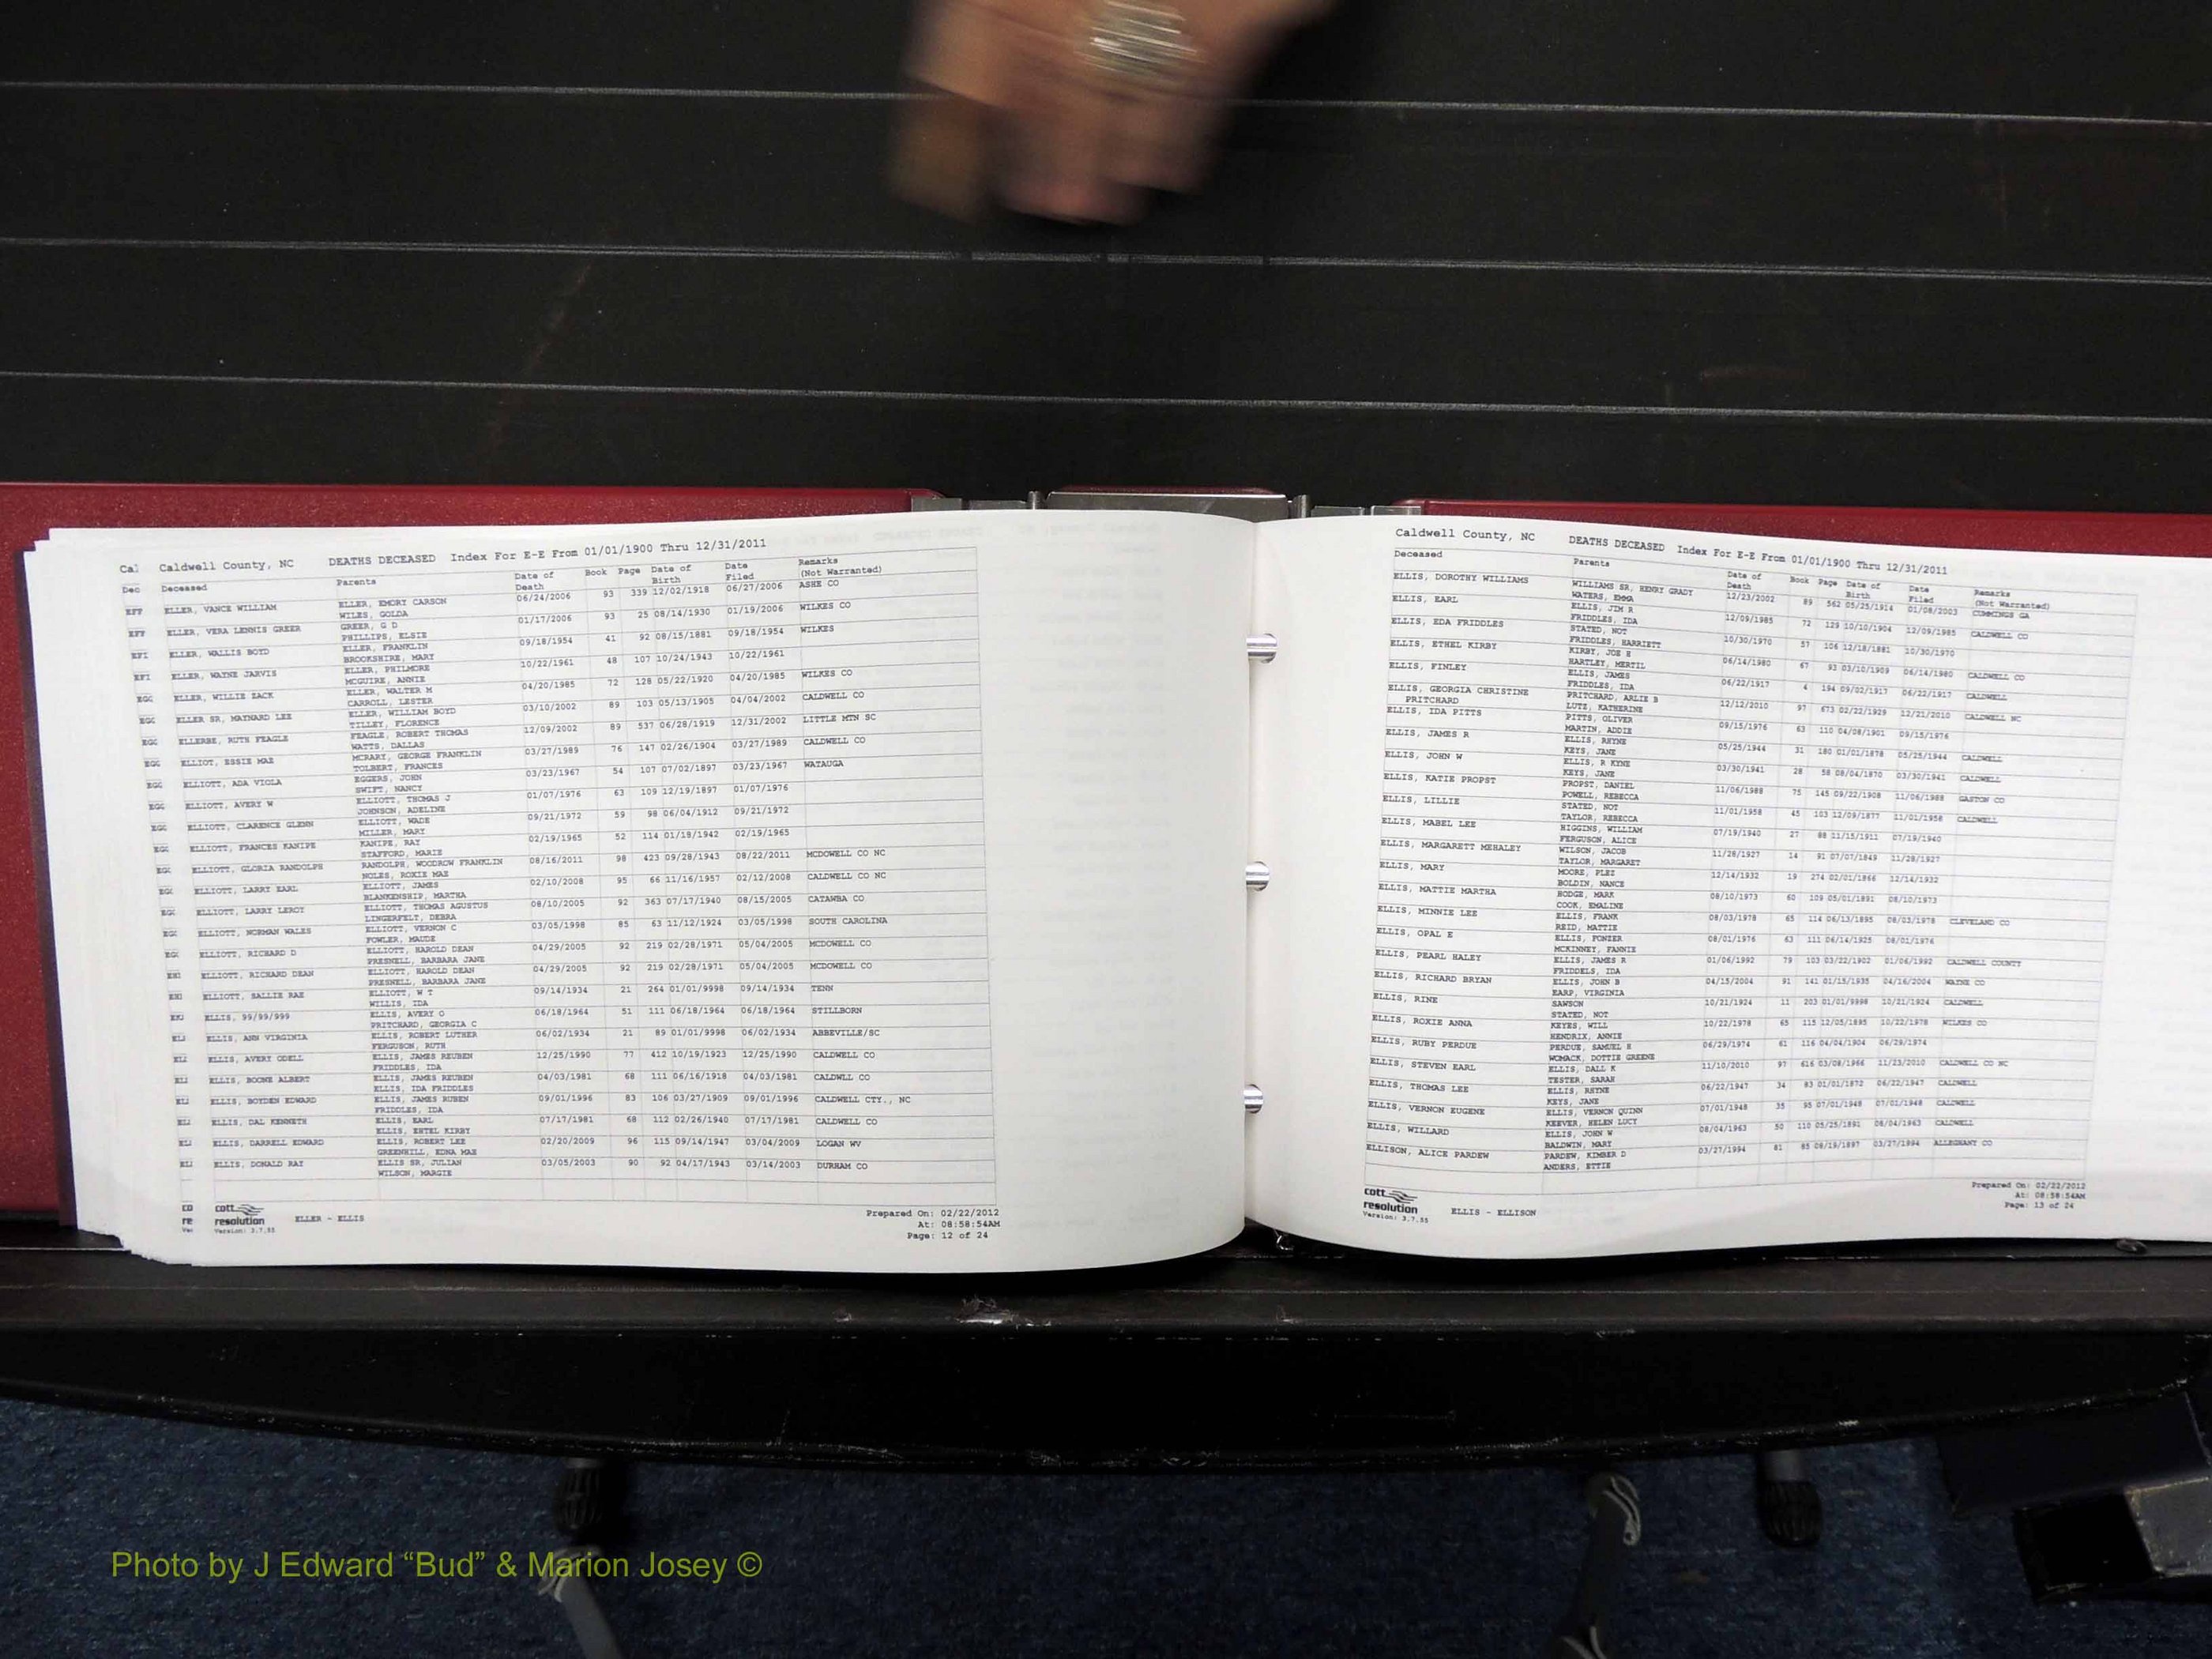 Caldwell County, NC DEATHS DECEASED Index For E-E From 01/01/1900 Thru 12/31/2011
Deceased Parents Date of Death Book Page Date of Birth Date Filed Remarks (Not Warranted)
ELLER, VANCE WILLIAM ELLER, EMORY CARSON 06/24/2006 93 339 12/02/1918 06/27/2006 ASHE CO
WILES, GOLDA
ELLER, VERA LENNIS GREER GREER, G D 01/17/2006 93 25 08/14/1930 01/19/2006 WILKES CO
PHILLIPS, ELSIE
ELLER, WALLIS BOYD ELLER, FRANKLIN 09/18/1954 41 92 08/15/1881 09/18/1954 WILKES
BROOKSHIRE, MARY
ELLER, WAYNE JARVIS ELLER, PHILMORE 10/22/1961 48 107 10/24/1943 10/22/1961
MCGUIRE, ANNIE
ELLER, WILLIE ZACK ELLER, WALTER M 04/20/1985 72 128 05/22/1920 04/20/1985 WILKES CO
CARROLL, LESTER
ELLER SR, MAYNARD LEE ELLER, WILLIAM BOYD 03/10/2002 89 103 05/13/1905 04/04/2002 CALDWELL CO
TILLEY, FLORENCE
ELLERBE, RUTH FEAGLE FEAGLE, ROBERT THOMAS 12/09/2002 89 537 06/28/1919 12/31/2002 LITTLE MTN SC
WATTS, DALLAS
ELLIOT, ESSIE MAE MCRARY, GEORGE FRANKLIN 03/27/1989 76 147 02/26/1904 03/27/1989 CALDWELL CO
TOLBERT, FRANCES
ELLIOTT, ADA VIOLA EGGERS, JOHN 03/23/1967 54 107 07/02/1897 03/23/1967 WATAUGA
SWIFT, NANCY
ELLIOTT, AVERY W ELLIOTT, THOMAS J 01/07/1976 63 109 12/19/1897 01/07/1976
JOHNSON, ADELINE
ELLIOTT, CLARENCE GLENN ELLIOTT, WADE 09/21/1972 59 98 06/04/1912 09/21/1972
MILLER, MARY
ELLIOTT, FRANCES KANIPE KANIPE, RAY 02/19/1965 52 114 01/18/1942 02/19/1965
STAFFORD, MARIE
ELLIOTT, GLORIA RANDOLPH RANDOLPH, WOODROW FRANKLIN 08/16/2011 98 423 09/28/1943 08/22/2011 MCDOWELL CO NC
NOLES, ROXIE MAE
ELLIOTT, LARRY EARL ELLIOTT, JAMES 02/10/2008 95 66 11/16/1957 02/12/2008 CALDWELL CO NC
BLANKENSHIP, MARTHA
ELLIOTT, LARRY LEROY ELLIOTT, THOMAS AGUSTUS 08/10/2005 92 363 07/17/1940 08/15/2005 CATAWBA CO
LINGERFELT, DEBRA
ELLIOTT, NORMAN WALES ELLIOTT, VERNON C 03/05/1998 85 63 11/12/1924 03/05/1998 SOUTH CAROLINA
FOWLER, MAUDE
ELLIOTT, RICHARD D ELLIOTT, HAROLD DEAN 04/29/2005 92 219 02/28/1971 05/04/2005 MCDOWELL CO
PRESNELL, BARBARA JANE
ELLIOTT, RICHARD DEAN ELLIOTT, HAROLD DEAN 04/29/2005 92 219 02/28/1971 05/04/2005 MCDOWELL CO
PRESNELL, BARBARA JANE
ELLIOTT, SALLIE RAE ELLIOTT, W T 09/14/1934 21 264 01/01/9998 09/14/1934 TENN
WILLIS, IDA
ELLIS, 99/99/999 ELLIS, AVERY O 06/18/1964 51 111 06/18/1964 06/18/1964 STILLBORN
PRITCHARD, GEORGIA C
ELLIS, ANN VIRGINIA ELLIS, ROBERT LUTHER 06/02/1934 21 89 01/01/9998 06/02/1934 ABBEVILLE/SC
FERGUSON, RUTH
ELLIS, AVERY ODELL ELLIS, JAMES REUBEN 12/25/1990 77 412 10/19/1923 12/25/1990 CALDWELL CO
FRIDDLES, IDA
ELLIS, BOONE ALBERT ELLIS, JAMES REUBEN 04/03/1981 68 111 06/16/1918 04/03/1981 CALDWLL CO
ELLIS, IDA FRIDDLES
ELLIS, BOYDEN EDWARD ELLIS, JAMES RUBEN 09/01/1996 83 106 03/27/1909 09/01/1996 CALDWELL CTY., NC
FRIDDLES, IDA
ELLIS, DAL KENNETH ELLIS, EARL 07/17/1981 68 112 02/26/1940 07/17/1981 CALDWELL CO
ELLIS, EHTEL KIRBY
ELLIS, DARRELL EDWARD ELLIS, ROBERT LEE 02/20/2009 96 115 09/14/1947 03/04/2009 LOGAN WV
GREENHILL, EDNA MAE
ELLIS, DONALD RAY ELLIS SR, JULIAN 03/05/2003 90 92 04/17/1943 03/14/2003 DURHAM CO
WILSON, MARGIE
cott
resolution
Version: 3.7.55
ELLER - ELLIS
Prepared On: 02/22/2012
At: 08:58:54AM
Page: 12 of 24
Caldwell County, NC DEATHS DECEASED Index For E-E From 01/01/1900 Thru 12/31/2011
Deceased Parents Date of Death Book Page Date of Birth Date Filed Remarks (Not Warranted)
ELLIS, DOROTHY WILLIAMS WILLIAMS SR, HENRY GRADY 12/23/2002 89 562 05/25/1914 01/08/2003 CUMMINGS GA
WATERS, EMMA
ELLIS, EARL ELLIS, JIM R 12/09/1985 72 129 10/10/1904 12/09/1985 CALDWELL CO
FRIDDLES, IDA
ELLIS, EDA FRIDDLES STATED, NOT 10/30/1970 57 106 12/18/1881 10/30/1970
FRIDDLES, HARRIETT
ELLIS, ETHEL KIRBY KIRBY, JOE H 06/14/1980 67 93 03/10/1909 06/14/1980 CALDWELL CO
HARTLEY, MERTIL
ELLIS, FINLEY ELLIS, JAMES 06/22/1917 4 194 09/02/1917 06/22/1917 CALDWELL
FRIDDLES, IDA
ELLIS, GEORGIA CHRISTINE PRITCHARD, ARLIE B 12/12/2010 97 673 02/22/1929 12/21/2010 CALDWELL NC
PRITCHARD LUTZ, KATHERINE
ELLIS, IDA PITTS PITTS, OLIVER 09/15/1976 63 110 04/08/1901 09/15/1976
MARTIN, ADDIE
ELLIS, JAMES R ELLIS, RHYNE 05/25/1944 31 180 01/01/1878 05/25/1944 CALDWELL
KEYS, JANE
ELLIS, JOHN W ELLIS, R KYNE 03/30/1941 28 58 08/04/1870 03/30/1941 CALDWELL
KEYS, JANE
ELLIS, KATIE PROPST PROPST, DANIEL 11/06/1988 75 145 09/22/1908 11/06/1988 GASTON CO
POWELL, REBECCA
ELLIS, LILLIE STATED, NOT 11/01/1958 45 103 12/09/1877 11/01/1958 CALDWELL
TAYLOR, REBECCA
ELLIS, MABEL LEE HIGGINS, WILLIAM 07/19/1940 27 88 11/15/1911 07/19/1940
FERGUSON, ALICE
ELLIS, MARGARETT MEHALEY WILSON, JACOB 11/28/1927 14 91 07/07/1849 11/28/1927
TAYLOR, MARGARET
ELLIS, MARY MOORE, PLEZ 12/14/1932 19 274 02/01/1866 12/14/1932
BOLDIN, NANCE
ELLIS, MATTIE MARTHA HODGE, MARK 08/10/1973 60 109 05/01/1891 08/10/1973
COOK, EMALINE
ELLIS, MINNIE LEE ELLIS, FRANK 08/03/1978 65 114 06/13/1895 08/03/1978 CLEVELAND CO
REID, MATTIE
ELLIS, OPAL E ELLIS, PONZER 08/01/1976 63 111 06/14/1925 08/01/1976
MCKINNEY, FANNIE
ELLIS, PEARL HALEY ELLIS, JAMES R 01/06/1992 79 103 03/22/1902 01/06/1992 CALDWELL COUNTY
FRIDDELS, IDA
ELLIS, RICHARD BRYAN ELLIS, JOHN B 04/15/2004 91 141 01/15/1935 04/16/2004 WAYNE CO
EARP, VIRGINIA
ELLIS, RINE SAWSON 10/21/1924 11 203 01/01/9998 10/21/1924 CALDWELL
STATED, NOT
ELLIS, ROXIE ANNA KEYES, WILL 10/22/1978 65 115 12/05/1895 10/22/1978 WILKES CO
HENDRIX, ANNIE
ELLIS, RUBY PERDUE PERDUE, SAMUEL H 06/29/1974 61 116 04/04/1904 06/29/1974
WOMACK, DOTTIE GREENE
ELLIS, STEVEN EARL ELLIS, DALL K 11/10/2010 97 616 03/08/1966 11/23/2010 CALDWELL CO NC
TESTER, SARAH
ELLIS, THOMAS LEE ELLIS, RHYNE 06/22/1947 34 83 01/01/1872 06/22/1947 CALDWELL
KEYS, JANE
ELLIS, VERNON EUGENE ELLIS, VERNON QUINN 07/01/1948 35 95 07/01/1948 07/01/1948 CALDWELL
KEEVER, HELEN LUCY
ELLIS, WILLARD ELLIS, JOHN W 08/04/1963 50 110 05/25/1891 08/04/1963 CALDWELL
BALDWIN, MARY
ELLISON, ALICE PARDEW PARDEW, KIMBER D 03/27/1994 81 85 08/19/1897 03/27/1994 ALLEGHANY CO
ANDERS, ETTIE
cott
resolution
Version: 3.7.55
ELLIS - ELLISON
Prepared On: 02/22/2012
At: 08:58:54AM
Page: 13 of 24
Photo by J Edward “Bud” & Marion Josey ©